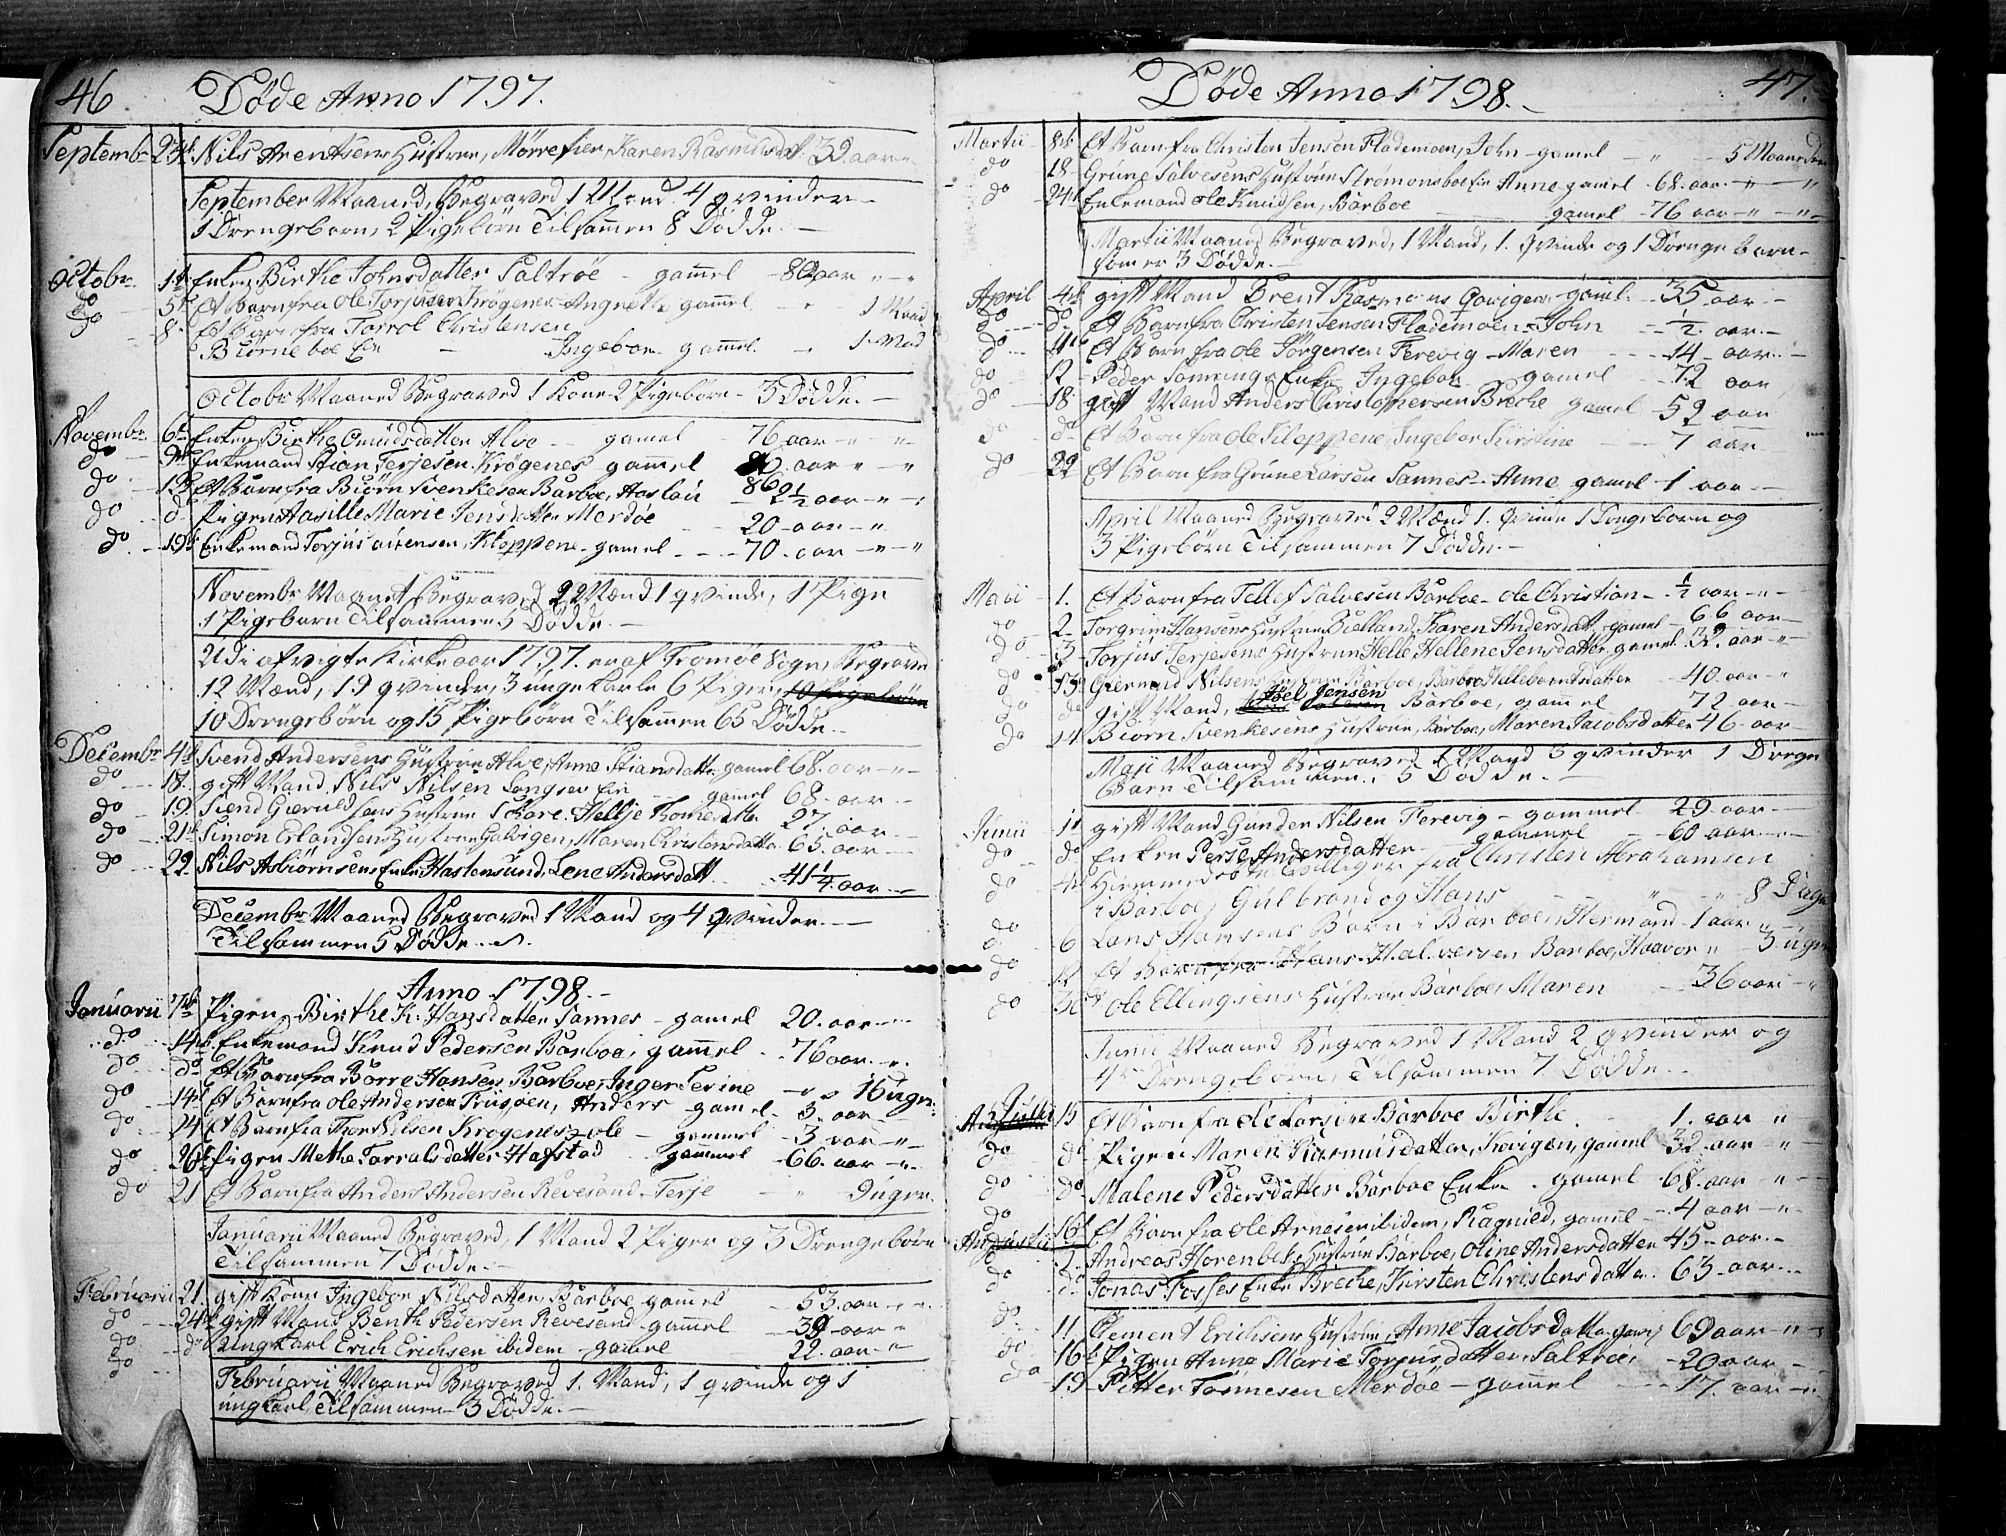 46 Døde Anno 1797.
Septembr 24 Nils Arentsens Hustrue, Mørrefier, Karen Rasmusdatr 39 aar
September Maaned, Begraved 1 Mand 4 qvinder
1 Drengebarn, 2 Pigebørn Tilsammen 8 Dødde.
Octobr 1t Enken Birthe Johnsdatter Saltrøe - gammel - 80 aar
do 5t Et Barn fra Ole Torjusen Krøgenes Angnethe gammel 1 Maad
do 8 Et Barn fra Tarrol Christensen
Biørneboe Eie - Ingebor gammel - 1 Mad
Octobr Maaned Begraved 1 Kone 2 Pigebørn - 3 Dødde.
Novembr 6t Enken Birthe Gnudsdatter Alve - gamel - 76 aar
do 9 Enkemand Stian Terjesen Krøgenes gammel 80. aar
do 12 Et Barn fra Biørn Svenkesen Barboe, Aaslau 2½ aar
do d Pigen Aasille Marie Jensdatter Merdøe 20 aar
do 19 Enkemand Torjus Kloppene - gamel - 70. aar
Novembr Maanet Begraved 2 Mænd 1 qvinde, 1 Pige
1 Pigebarn Tilsammen 5 Dødde.
Udi afvigte Kirke aar 1797. er af Tromøe Sogn, Begravne
12 Mænd, 19 qvinder, 3 unge Karle 6 Piger, 10 Pigebørn
10 Drengebørn og 15 Pigebørn Tilsammen 65 Dødde.
Decembr 4 Svend Andersens Hustrue Alve, Anne Stiansdatter gamel 68. aar
do 18. gift Mand Nils Nilsen Longsev Eie gamel 68. aar
do 19. Svend Hustrue Skare. 27. aar
do 21 Simon Erlandsens Hustrue Gaivigen, Maren Christensdatter 65. aar
do 22. Nils Asbiørnsens Enke Hastensund, Lene Andersdatt 41¼ aar
Decembr Maaned Begraved 1 Mand og 4 qvinder.
Tilsammen 5 Dødde.
Anno 1798.
Januarii 7 Pigen Birthe K. Hansdatter Sannes - gamel 20. aar
do 14 Enkemand Knud Pedersen Barboe, gammel - 76 aar
do do Et Barn fra Børre Hansen Barboe, Inger Serine 16 ugr.
do 14 Et Barn fra Ole Andersen Friisøen, Anders gamel. 3. aar
do 24 Et Barn fra Nilsen Krøgenes Ole - gammel - 3 aar
do 26 Pigen Methe Tarralsdatter Hafstad gammel 66. aar
do 21 Et Barn fra Anders Andersen Revesand Terje 9 ugr.
Januarii Maaned Begraved, 1 Mand 2 Piger og 3 Drengebørn
Tilsammen 7 Dødde.
Februarii 21. gift Kone Ingebor Nilsdatter Barboe gammel 53. aar
do 24 gift Mand Benth Pedersen Revesand gammel 39 aar
do do Ungkarl Erich Erichsen ibidem gamel 22. aar
do Februarii Maaned Begraved 1. Mand, 1 qvinde og 1
ungkarl, Tilsammen 3 Dødde.
Døde Anno 1798. 47.
Martii 8 Et Barn fra Christen Jensen Flademoen, John gamel 5 Maaneder
do 18 Grune Salvesens Hustrue Strømmsboe Eie Anne gamel 68. aar.
do 24 Enkemand Ole Knudsen, Barboe gamel 76 aar
Martii Maaned Begraved, 1 Mand, 1. qvinde og 1 Drengebarn
som er 3 Dødde.
April 4 gift Mand Brent Rasmusen Gavigen gamel. 35 aar
do do Et Barn fra Christen Jensen Flademoen John ½. aar.
do 11 Et Barn fra Ole Jørgensen Ferevig Maren 14 aar.
do 12 Peder Enke Ingebor gamel 72 aar
do 18. gift Mand Anders Christophersen Breche gamel 52 aar
do do Et Barn fra Ole Kloppene, Ingebor Kirstine 7 aar
do 22 Et Barn fra Grune Larsen Sannes - Anne gamel 1 aar
April Maaned Begraved 2 Mænd 1. qvinde 1 Drengebarn og
3 Pigebørn Tilsammen 7 Dødde.
Maii 1. Et Barn fra Tellef Salvesen Barboe - Ole Christian - ½ aar
do 2. Torgrim Hansens Hustrue Bielland, Karen Andersdatt. gamel - 66 aar
do 3. Torjus Terjesens Hustrue Helle Hellene Jensdatter gamel 32. aar
do 13 Giermund Nilsens Hustrue Barboe, Barbroe 40. aar
do do gift Mand, Joel Jensen Barboe, gammel 72 aar
do 14 Biørn Svenkesens Hustrue, Barboe, Maren Jacobsdatter 46. aar
Maii Maaned Begraved 1 Mand 3 qvinder 1 Drenge
Barn Tilsammen 5 Dødde.
Junii 1t gift Mand Gunder Nilsen Ferevig - gammel 29 aar
do do Enken Perse Andersdatter gammel 60 aar
do 4 Tvillinger fra Christen Abrahamsen
i Barboe, Gulbrand og Hans 8 Dage
do 6 Lars Hansens Barn i Barboe, Herman 1 aar
do 12 Et Barn fra Hans Halversen Barboe, Haavor 3 ugr
do 30 Ole Ellingsens Hustrue Barboe, Maren 36 aar
Junii Maaned Begraved 1 Mand 2 qvinder og
4 Drengebørn, Tilsammen 7 Dødde.
Julii 15 Et Barn fra Ole Larsen Barboe Birthe 1. aar
do do Pigen Maren Rasmusdatter, gammel 32. aar
do do Malene Pedersdatter Barboe Enke. gamel 68. aar
do 16 Et Barn fra Ole Arnesen ibidem, Ragnild, gamel - 4 aar
Augustii 5 Andreas Hustrue Barboe, Oline Andersdatter 45 aar.
do do Jonas Fosses Enke Breche, Kirsten Christensdatter. 63 aar.
do 11. Clement Erichsens Hustrue, Anne Jacobsdatter 69 aar
do 16 Pigen Anne Marie Torjusdatter, Saltrøe, 20 aar
do 19 Petter Tønnesen Merdøe - gammel 17. aar